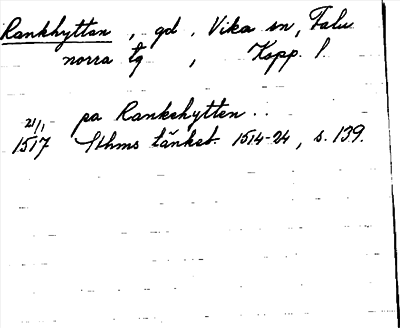 Rankhyttan, gd, Vika sn, Falu
norra tg, Kopp. l.
21/1 pa Rankehytten..
1517 Sthms tänkeb. 1514-24, s. 139.